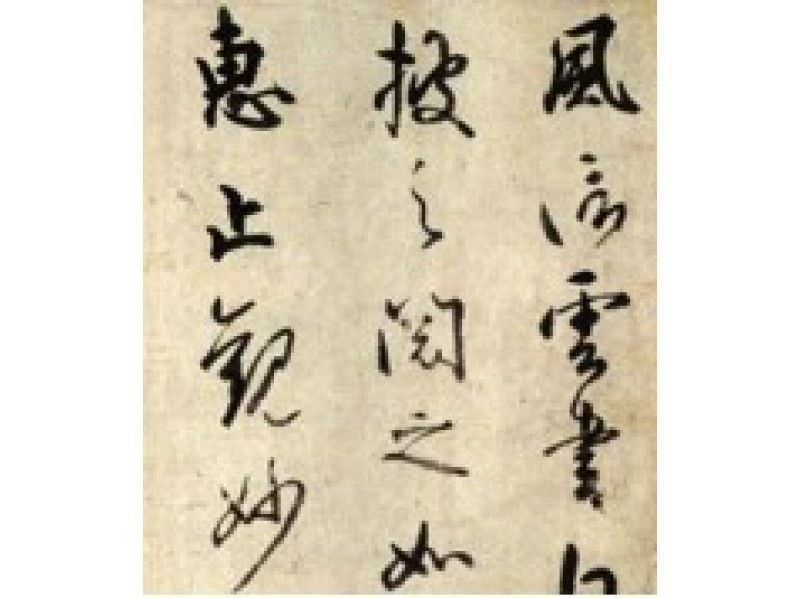 風信雲書
披之閱之如
惠止觀妙